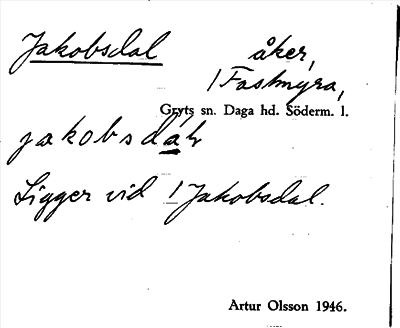 Jakobsdal åker,
/ Fastmyra,
Gryts sn. Daga hd. Söderm. l.
Ligger vid / Jakobsdal.
Artur Olsson 1946.